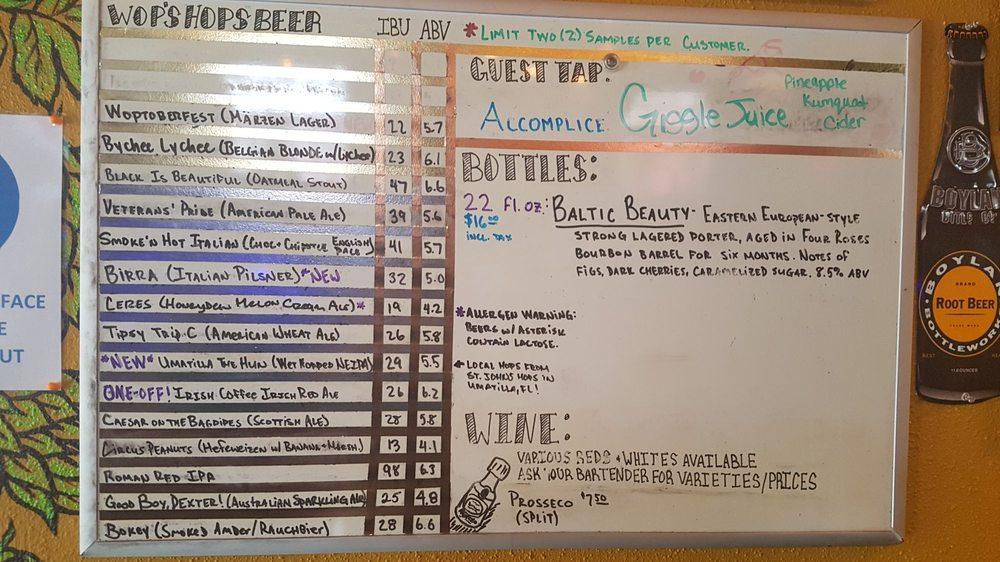 WOP'S HOPS BEER IBU ABV
WOPTOBERFEST (MÄRZEN LAGER) 22 5.7
BYCHEE LYCHEE (BELGIAN BLONDE W/LYCHEE) 23 6.1
BLACK IS BEAUTIFUL (OATMEAL STOUT) 47 6.6
VETERANS' PRIDE (AMERICAN PALE ALE) 39 5.6
SMOKE'N HOT ITALIAN (CHOC. CHIPOTLE ENGLISH PALE) 41 5.7
BIRRA (ITALIAN PILSNER) *NEW 32 5.0
CERES (HONEYDEW MELON CREAM ALE)* 19 4.2
TIPSY TRIP.C (AMERICAN WHEAT ALE) 26 5.8
*NEW* UMATILLA THE HUN (WET HOPPED NEIPA) 29 5.5
ONE-OFF! IRISH COFFEE IRISH RED ALE 26 6.2
CAESAR ON THE BAGPIPES (SCOTTISH ALE) 28 5.8
CIRCUS PEANUTS (HEFEWEIZEN W/ BANANA + MARSH.) 13 4.1
ROMAN RED IPA 98 6.3
GOOD BOY, DEXTER! (AUSTRALIAN SPARKLING ALE) 25 4.8
BOKEY (SMOKED AMBER/RAUCHBIER) 28 6.6
*LIMIT TWO (2) SAMPLES PER CUSTOMER.
GUEST TAP:
ACCOMPLICE Giggle Juice Pineapple
Kumquat
Cider
BOTTLES:
22 FL. OZ: BALTIC BEAUTY - EASTERN EUROPEAN-STYLE
$16.00
INCL. TAX
STRONG LAGERED PORTER, AGED IN FOUR ROSES
BOURBON BARREL FOR SIX MONTHS. NOTES OF
FIGS, DARK CHERRIES, CARAMELIZED SUGAR. 8.5% ABV
*ALLERGEN WARNING:
BEERS W/ ASTERISK
CONTAIN LACTOSE.
LOCAL HOPS FROM
ST. JOHNS HOPS IN
UMATILLA, FL!
WINE:
VARIOUS REDS + WHITES AVAILABLE
ASK YOUR BARTENDER FOR VARIETIES/PRICES
PROSSECO $7.50
(SPLIT)
FACE
E
UT
BOYLAN
BOTTLE CO
BOYLAN
BRAND
ROOT BEER
BOTTLEWORKS